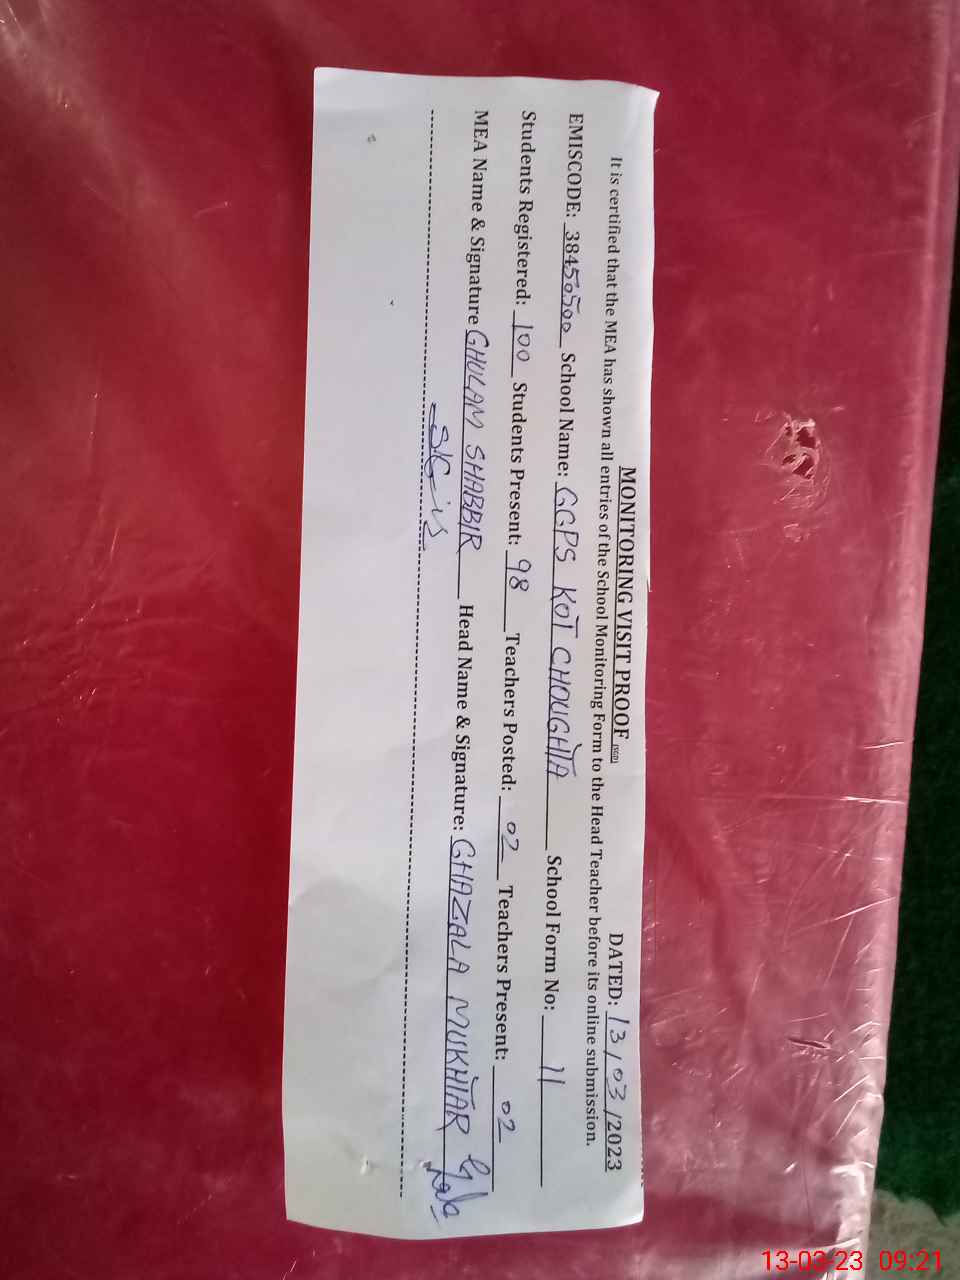 MONITORING VISIT PROOF (SGD) DATED: 13/03/2023
It is certified that the MEA has shown all entries of the School Monitoring Form to the Head Teacher before its online submission.
EMISCODE: 38450500 School Name: GGPS KOT CHOUGHTA School Form No: 11
Students Registered: 100 Students Present: 98 Teachers Posted: 02 Teachers Present: 02
MEA Name & Signature GHULAM SHABBIR Head Name & Signature: GHAZALA MUKHTAR
13-03-23 09:21